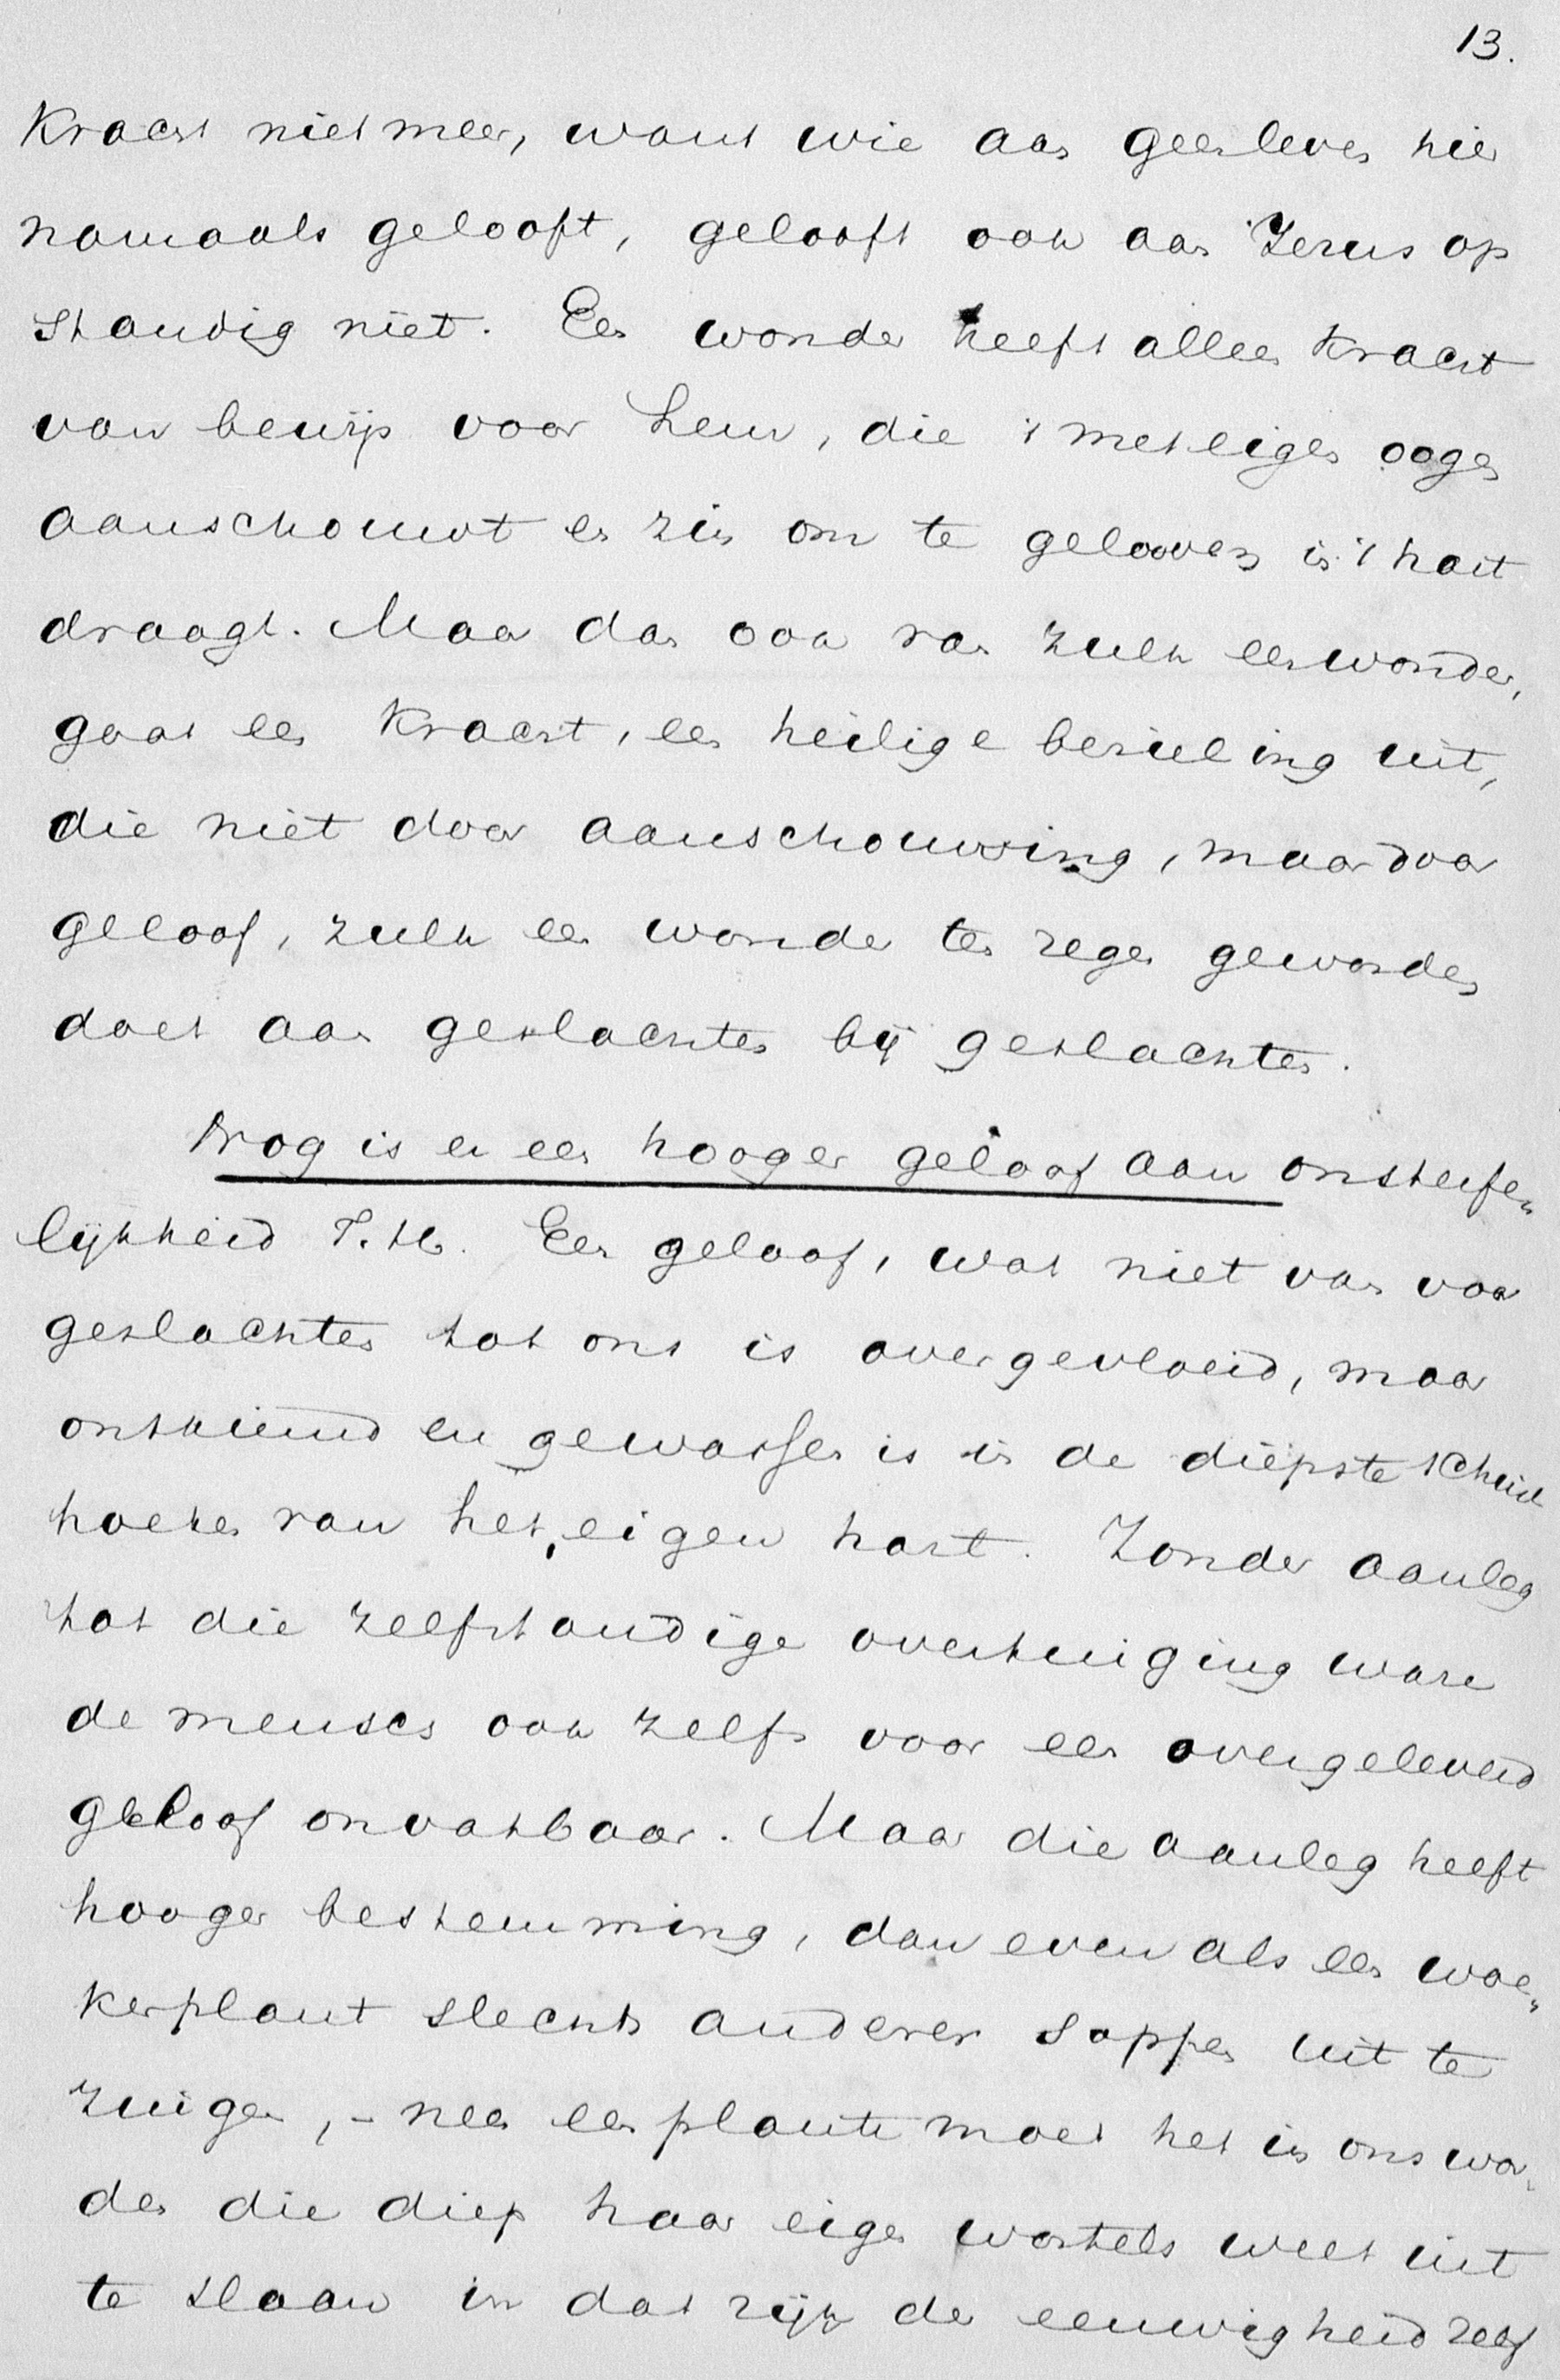 13.
Kracht niet meer, want wie aan geen leven hier
namaals gelooft, gelooft ook aan Jezus op
standig niet. Een wonder heeft alleen kracht
van bewijs voor hem, die 't met eigen oogen
aanschouwt en zin om te gelooven in 't hart
draagt. Maar dan ook van zulk een wonder,
gaat een kracht, een heilige bezieling uit,
die niet door aanschouwing, maar door
geloof, zulk een wonder ten zegen geworden
doet aan geslachten bij geslachten.
Nog is er een hooger geloof aan onsterfe„
lijkheid T. H. Een geloof, wat niet van voor
geslachten tot ons is overgevloeid, maar
ontkiemd en gewassen is in de diepste schuil
hoeken van het eigen hart. Zonder aanleg
tot die zelfstandige overtuiging ware
de mensch ook zelfs voor een overgeleverd
geloof onvatbaar. Maar die aanleg heeft
hooger bestemming, dan even als een woe„
kerplant slechts anderer sappen uit te
zuigen, – neen een plante moet het in ons wor„
den die diep haar eigen wortels weet uit
te slaan in dat rijk der eeuwigheid zelf